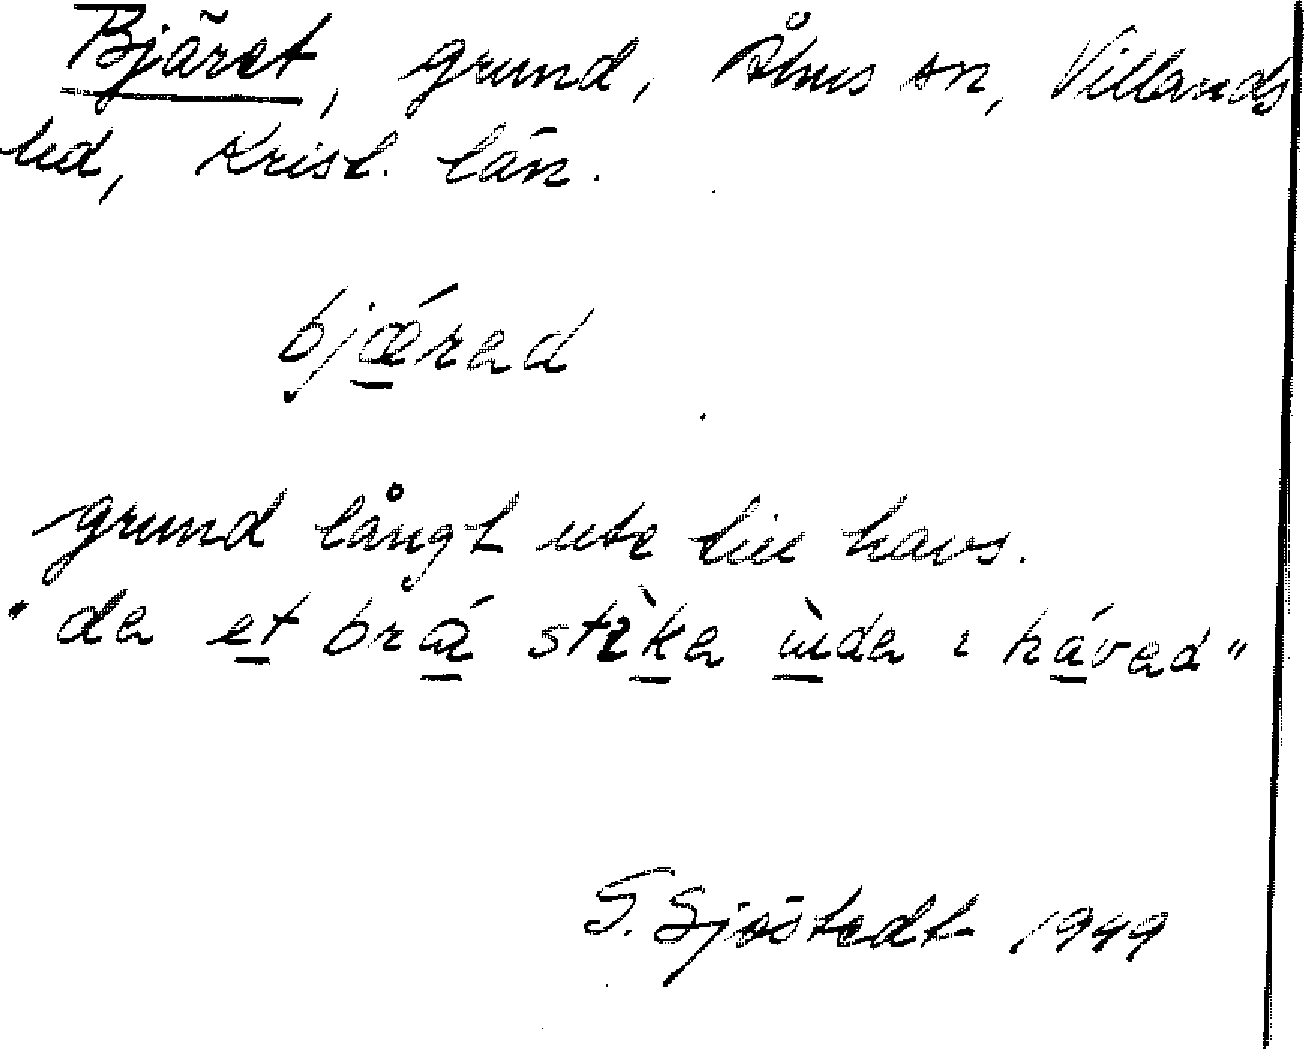 Bjäret, grund, Åhus sn, Villands
hd, Krist. län.
bjǽred
grund långt ute till havs.
"de et brǽ stìke ùde i háved"
G. Sjöstedt 1949